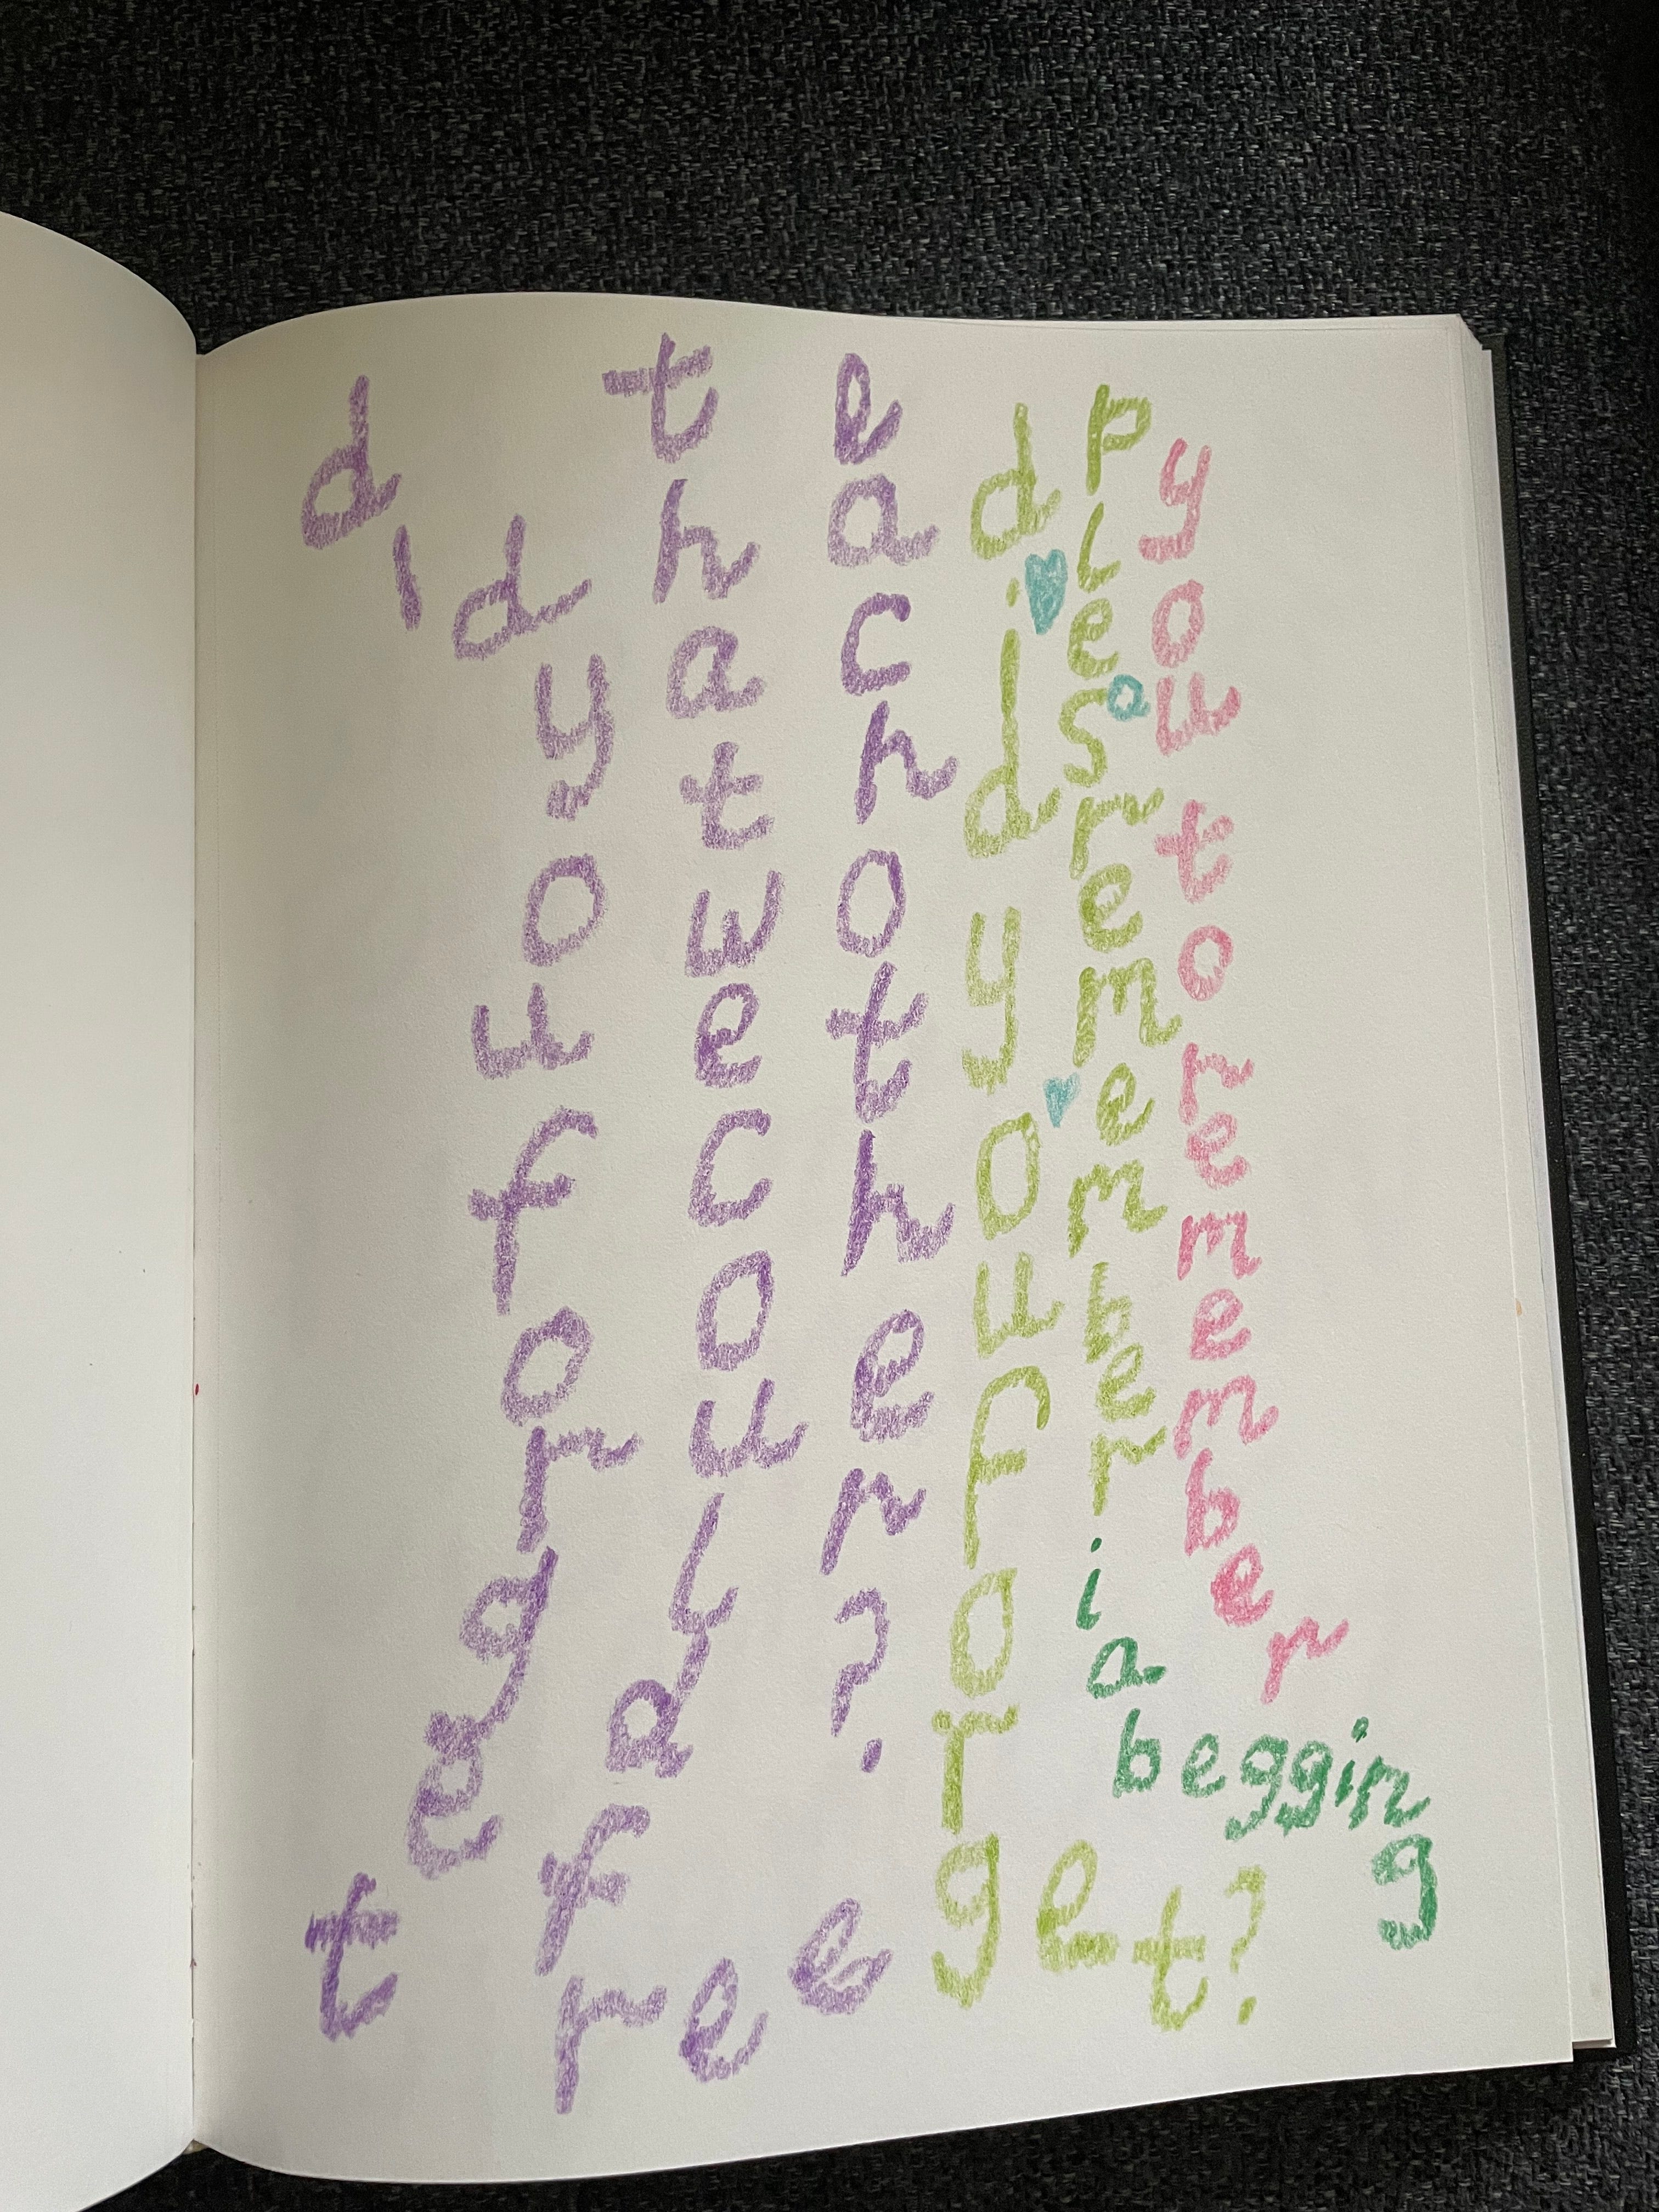 did you forget
that we could free
each other?
did you forget?
pleas remember i a begging
you to remember